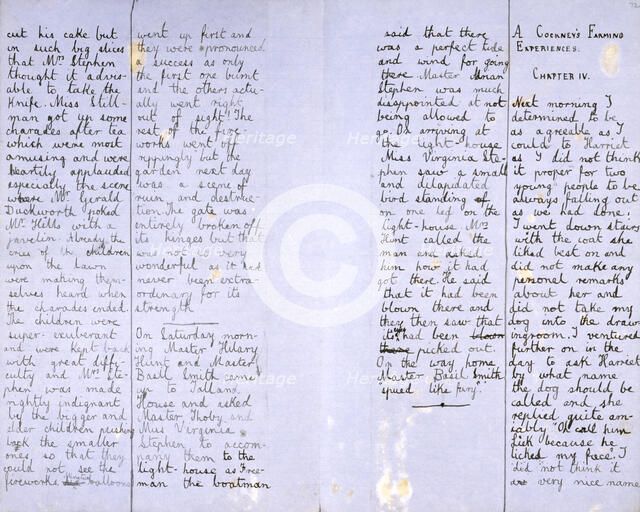 cut his cake but
in such big slices
that Mrs Stephen
thought it advis-
able to take the
Knife. Miss Still-
man got up some
charades after tea
which were most
amusing and were
heartily applauded
especially the scene
where Mr Gerald
Duckworth poked
Mr Hills with a
javelin. Already the
cries of the children
upon the lawn
were making them-
selves heard when
the charades ended.
The children were
super-exuberant
and were kept back
with great diffi-
culty and Mrs Ste-
phen was made
rightly indignant
by the bigger and
older children pushing
back the smaller
ones, so that they
could not see the
fireworks balloons
went up first and
they were pronounced
a success as only
the first one burnt
and the others actu-
ally went right
out of sight! The
rest of the fire-
works went off
rippingly but the
garden next day
was a scene of
ruin and destruc-
tion. The gate was
entirely broken off
its hinges but that
was not very
wonderful as it had
never been extra-
ordinary for its
strength
On Saturday morn-
ing Master Hilary
Hunt and Master
Basil Smith came
up to Talland
House and asked
Master Thoby and
Miss Virginia
Stephen to accom-
pany them to the
light-house as Free-
man the boatman
said that there
was a perfect tide
and wind for going
there. Master Adrian
Stephen was much
disappointed at not
being allowed to
go. On arriving at
the light-house
Miss Virginia Ste-
phen saw a small
and dilapidated
bird standing
on one leg on the
light-house. Mrs
Hunt called the
man and asked
him how it had
got there. He said
that it had been
blown there and
they then saw that
its eyes had been blown
there picked out.
On the way home
Master Basil Smith
"spued like fury".
72
A COCKNEY'S FARMING
EXPERIENCES.
CHAPTER IV.
Next morning I
determined to be
as agreeable as I
could to Harriet
as I did not think
it proper for two
young people to be
always falling out
as we had done.
I went down stairs
with the coat she
liked best on and
did not make any
personel remarks
about her and
did not take my
dog into the draw
ingroom. I ventured
further on in the
day to ask Harriet
by what name
the dog should be
called and she
replied quite am-
iably "Oh call him
Lick because he
licked my face". I
did not think it
a very nice name